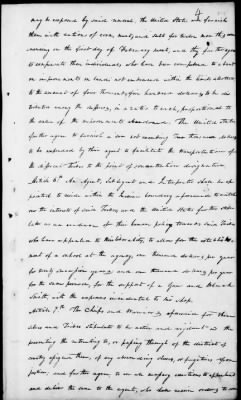 4
may be exposed by said removal, the United States will furnish
them with rations of corn, meat, and salt for twelve mos, they com-
mencing on the first day of February next, and they further agree
to compensate those individuals who have been compelled to abandon
improvements on lands not embraced within the limits allotted
to the amount of four thousand five hundred dollars to be dis-
tributed among the sufferers, in a ratio to each, proportional to
the value of the improvements abandoned. The United States
further agree to furnish a sum not exceeding two thousand dollars
to be expended by their agent to facilitate the transportation of
the different tribes to the point of concentration designation.
Article 6th. An Agent, Sub agent and Interpreter shall be ap-
pointed to reside within the Indian boundary aforesaid to watch
over the interests of said Tribes, and the United States further stipu-
late as an evidence of their humane policy towards said Tribes
who have appealed to their liberality, to allow for the establish-
ment of a school at the agency, one thousand dollars per year
for twenty successive years and one thousand dollars per year
for the same period, for the support of a Gun and Black
Smith, with the expenses incidental to his shop.
Article 7th. The Chiefs and Warriors aforesaid for them-
selves and Tribes stipulate to be active and vigilant in the
preventing the retreating to, or passing through of the district of
country assigned them, of any absconding slaves, or fugitives from
justice, and further agree, to use all necessary exertions to apprehend
and deliver the same to the agent, who shall receive orders to com-